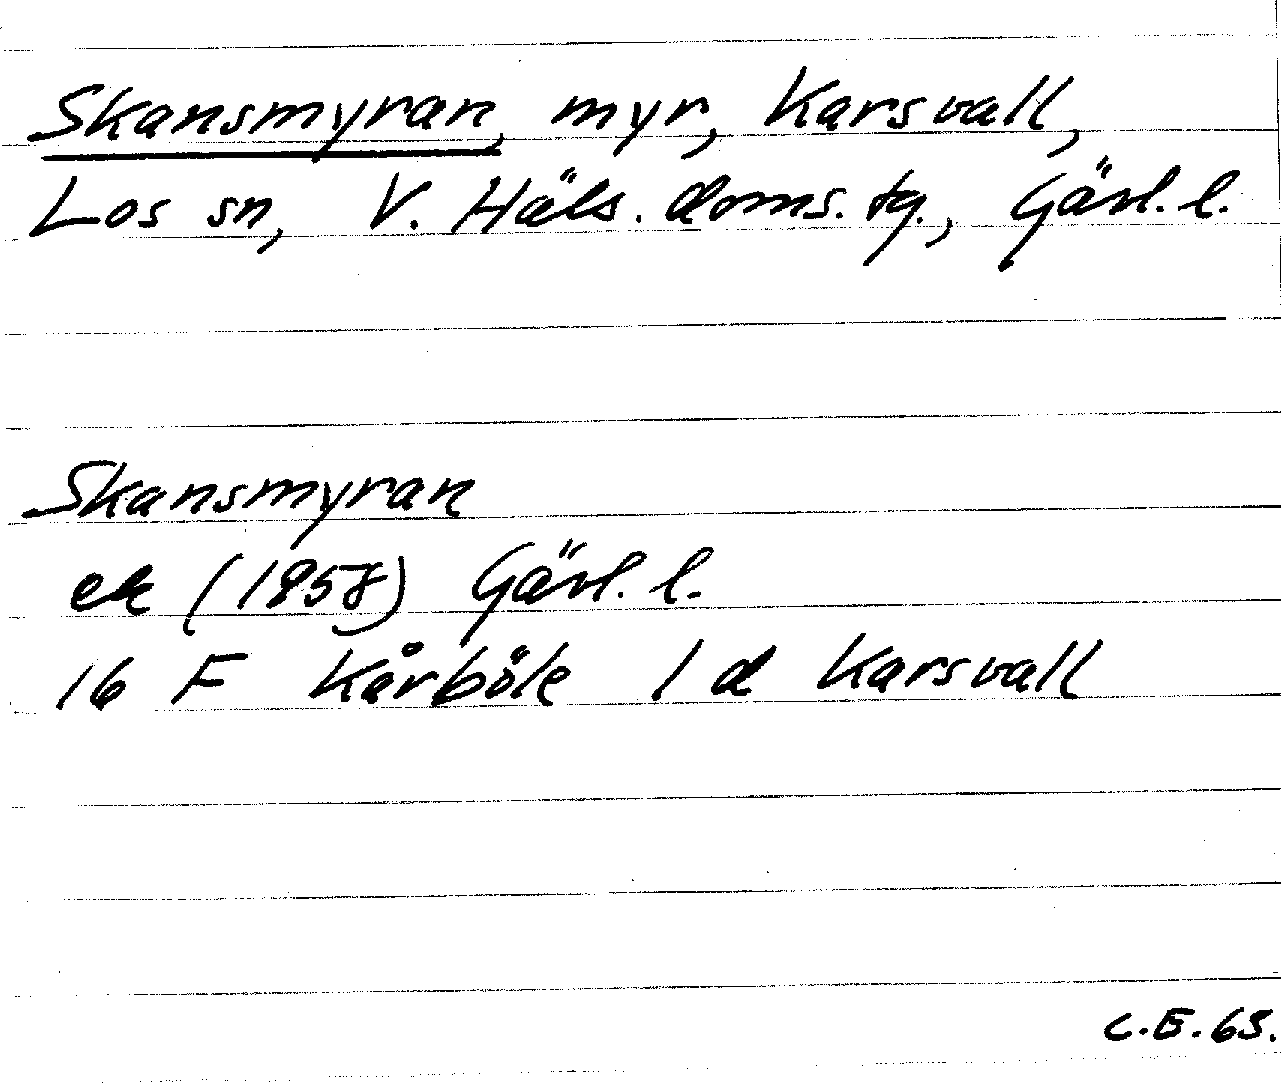 Skansmyran, myr, Karsvall,
Los sn, V. Häls. doms. tg., Gävl. l.
Skansmyran
ek (1958) Gävl. l.
16 F Kårböle 1 d Karsvall
C.E. 65.